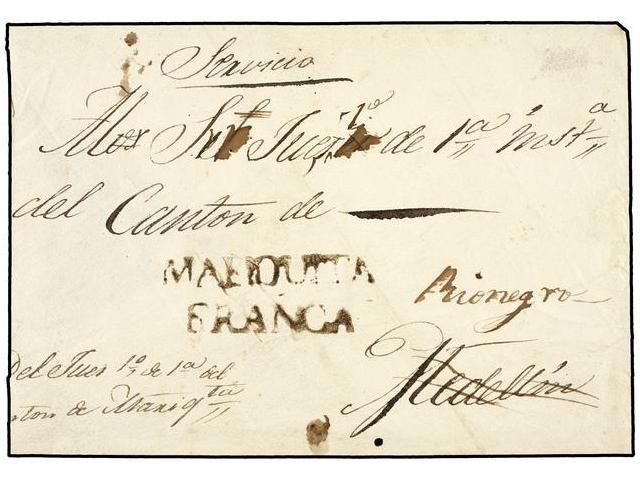 Servicio
Juez 1º de 1ª instª
del Canton de
MARIQUITA
FRANCA
Rionegro
Medellín
Del Juez 1º de 1ª del
Canton de Mariqta